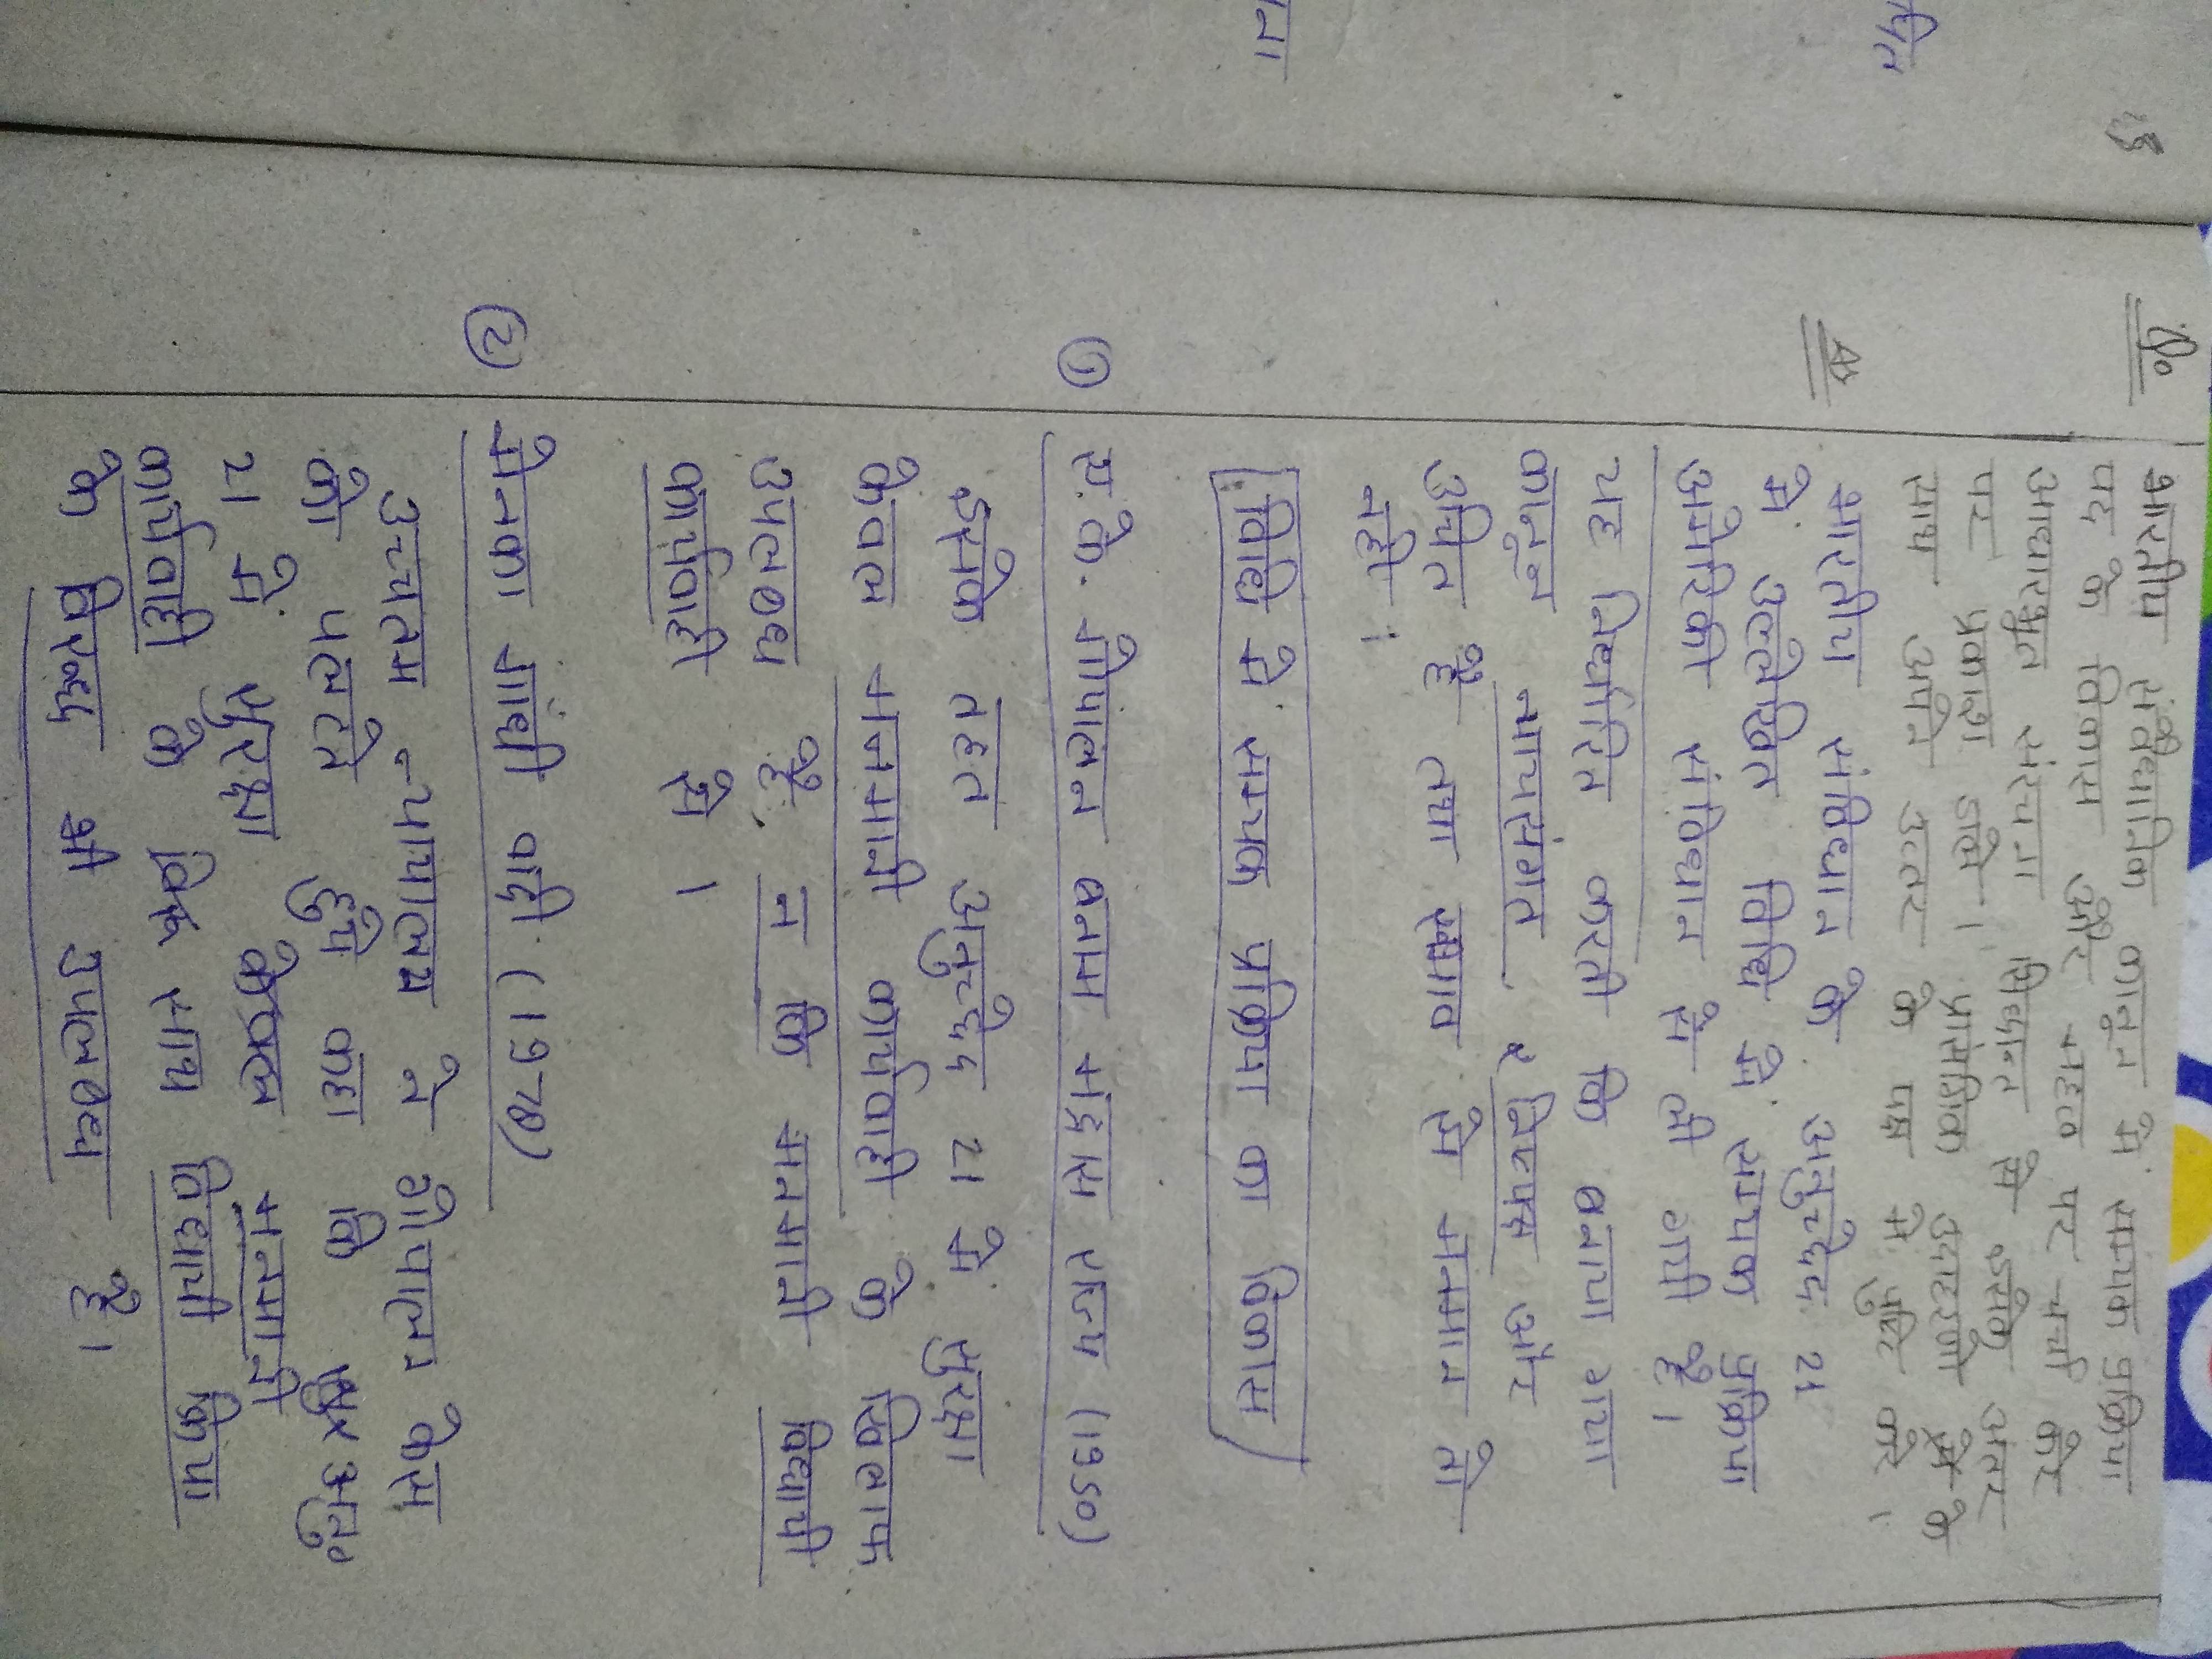 प्र०
भारतीय संवैधानिक कानून में सम्यक प्रक्रिया
पद के विकास और महत्व पर चर्चा करे
आधारभूत संरचना सिद्धान्त में इसके अंतर
पर प्रकाश डाले। प्रासंगिक उदाहरणो के
साथ अपने उत्तर के पक्ष में पुष्टि करे।
भारतीय संविधान के अनुच्छेद 21
में उल्लेखित विधि में सम्यक प्रक्रिया
अमेरिकी संविधान से ली गयी है।
यह निर्धारित करती कि बनाया गया
कानून न्यायसंगत, निष्पक्ष और
उचित है तथा स्वभाव से मनमाना तो
नहीं।
विधि में सम्यक प्रक्रिया का विकास
① ए. के. गोपालन बनाम मद्रास राज्य (1950)
इसके तहत अनुच्छेद 21 में सुरक्षा
केवल मनमानी कार्यवाही के खिलाफ
उपलब्ध है, न कि मनमानी विधायी
कार्यवाही से।
② मेनका गांधी वाद (1978)
उच्चतम न्यायालय ने गोपालन केस
को पलटते हुये कहा कि अनु०
21 में सुरक्षा केवल मनमानी
कार्यवाही के साथ विधायी क्रिया
के विरुद्ध भी उपलब्ध है।